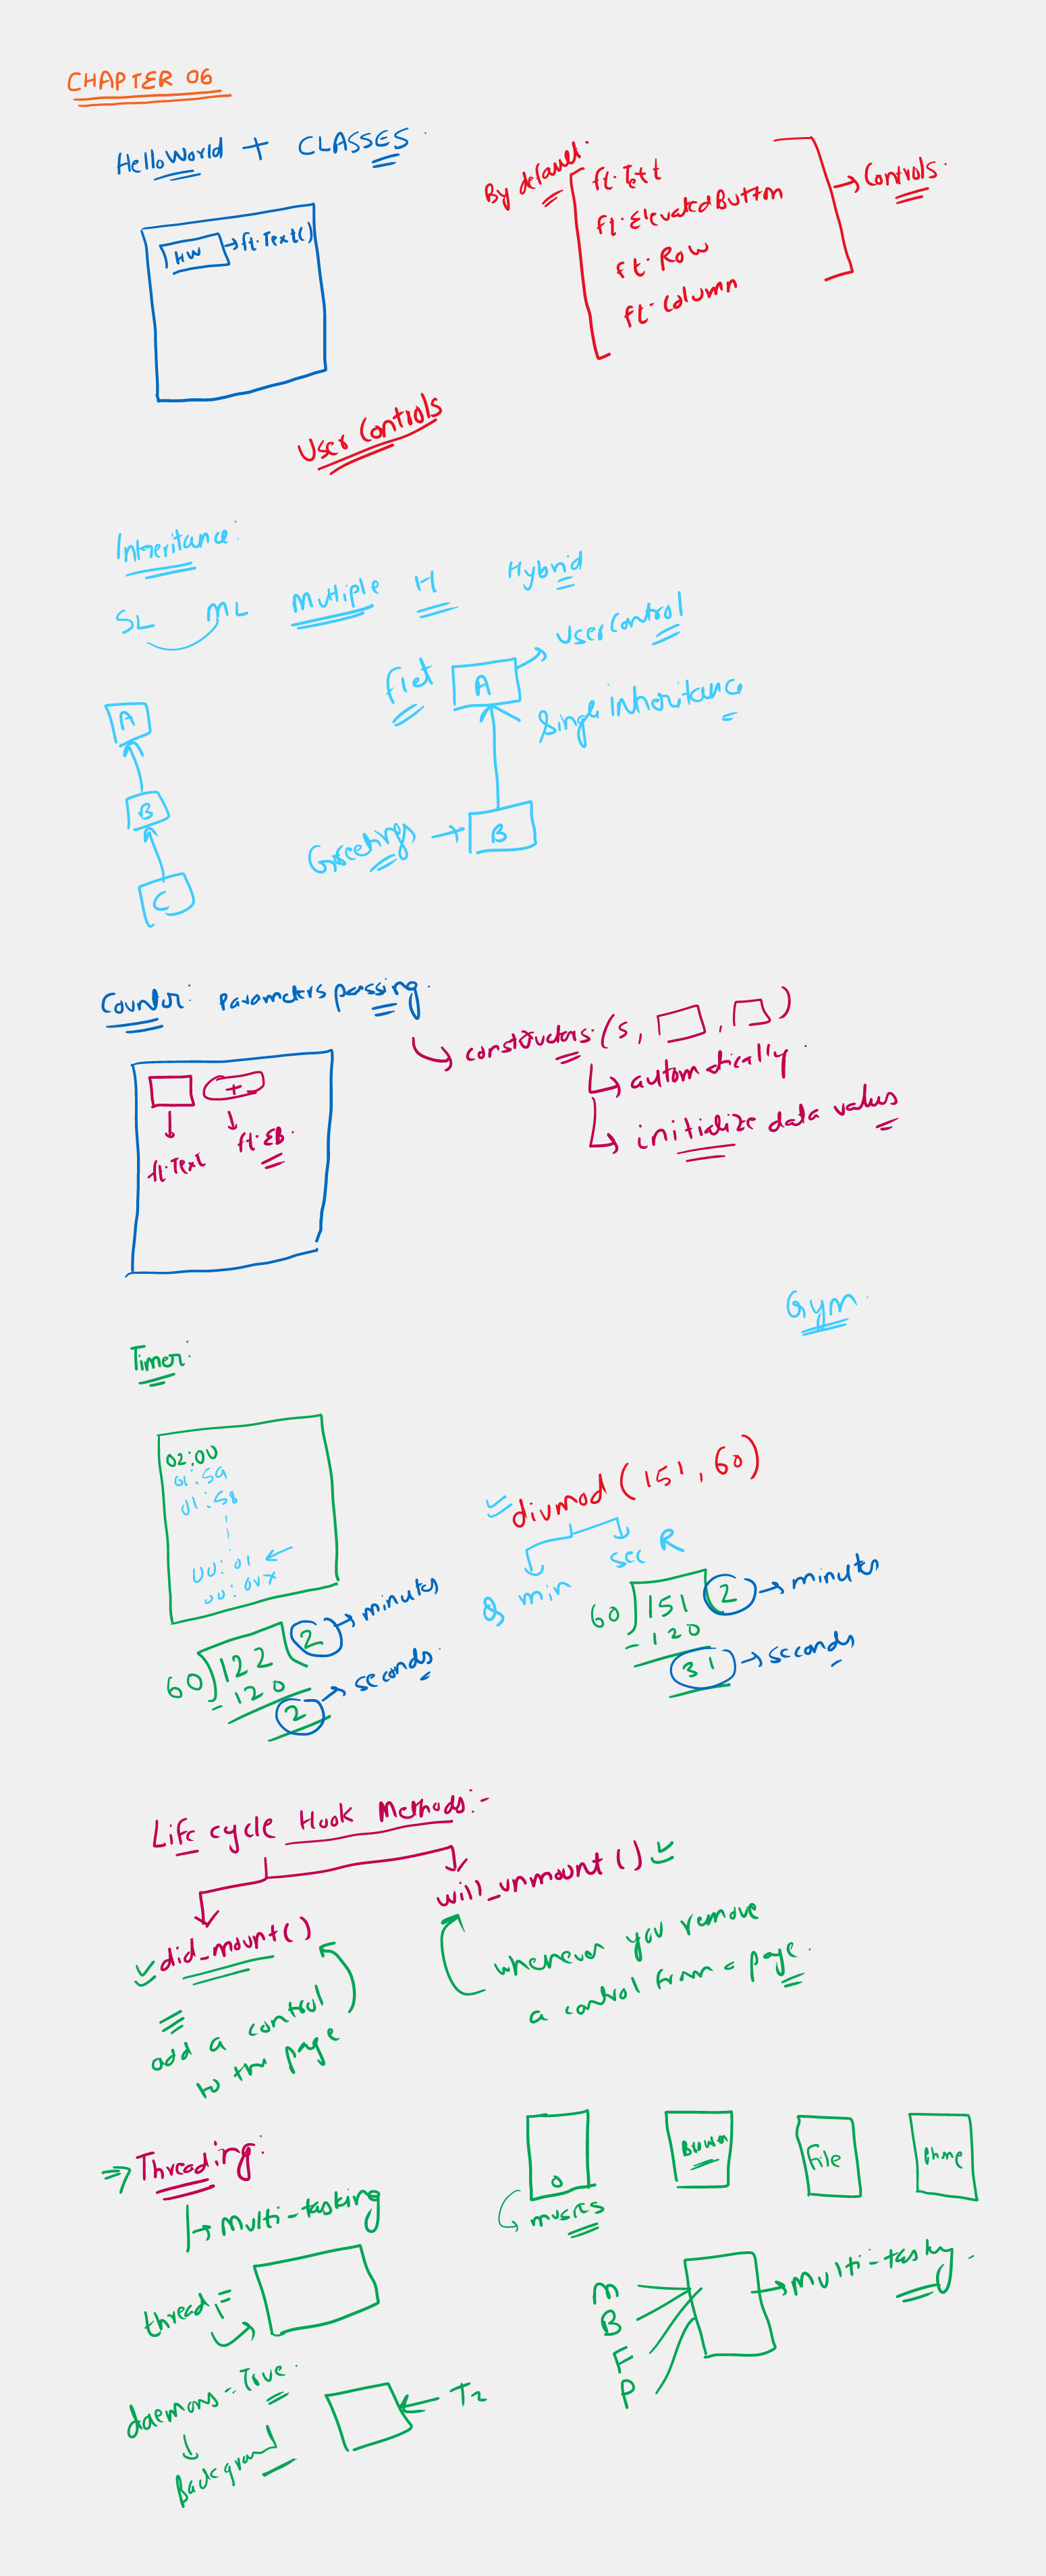 CHAPTER 06
HelloWorld + CLASSES
HW → ft.Text()
By default:
ft.Text
ft.ElevatedButton
ft.Row
ft.Column
→ Controls
User Controls
Inheritance:
SL ML Multiple H Hybrid
Flet
A → UserControl
Single inheritance
Greetings → B
A
B
C
Counter: Parameters passing
→ constructors (s, , )
→ automatically
→ initialize data values
+
ft.Text
ft.EB
Gym
Timer:
02:00
01:59
01:58
00:01 ←
00:00x
divmod (151, 60)
Q min sec R
60)122(2 → minutes
-120
2 → seconds
60)151(2 → minutes
-120
31 → seconds
Life cycle Hook Methods:-
did_mount()
add a control
to the page
will_unmount()
whenever you remove
a control from a page.
⇒ Threading:
→ Multi-tasking
thread1 =
daemons = True
↓
Background
← T2
musics
Brower
File
Phone
M
B
F
P
→ Multi-tasky